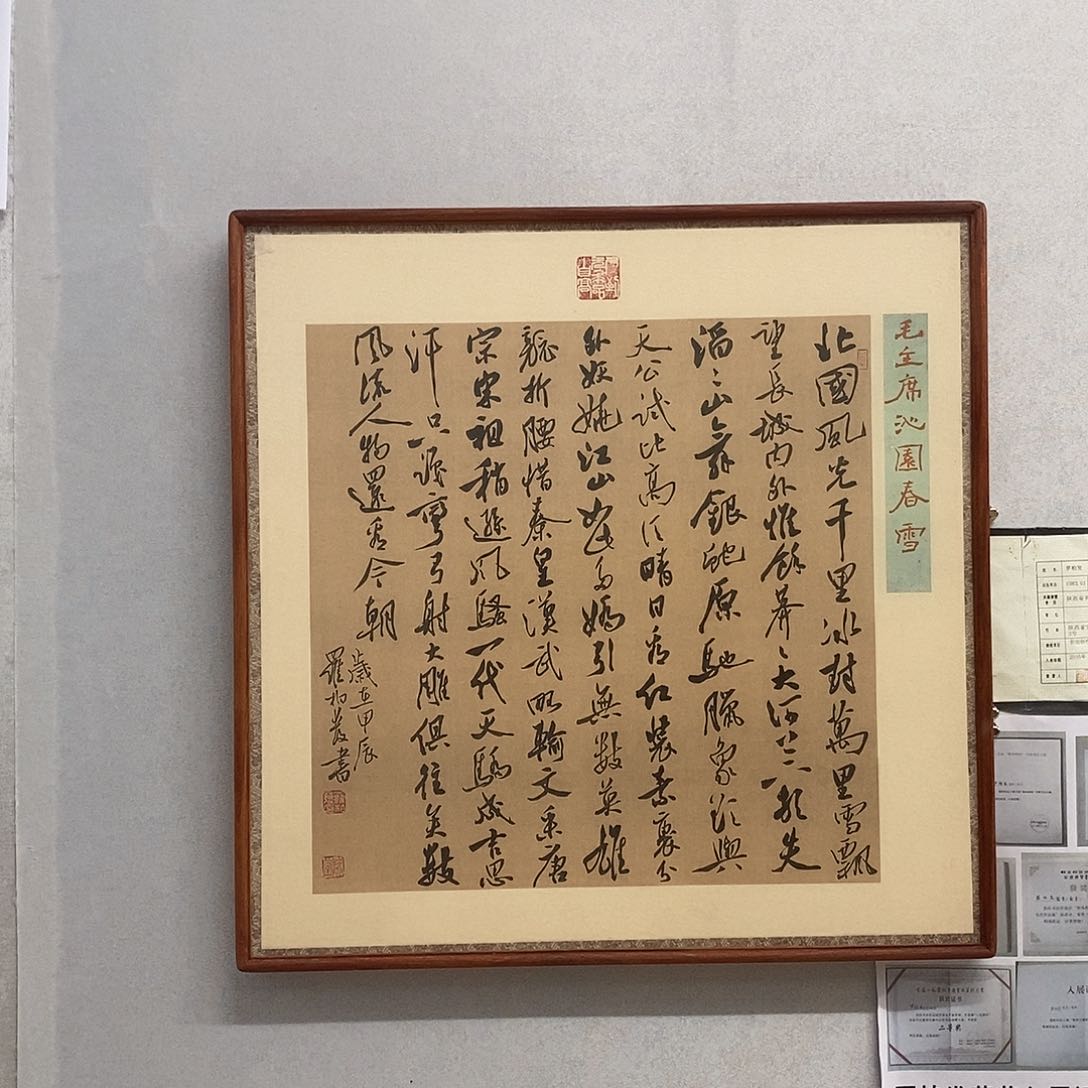 毛主席沁園春雪
北國風光千里冰封萬里雪飄
望長城内外惟餘莽〻大河上下頓失
滔〻山舞銀蛇原馳臘象欲與
天公試比高須晴日看紅裝素裹分
外妖嬈江山如此多嬌引無數英雄
競折腰惜秦皇漢武略輸文采唐
宗宋祖稍遜風騷一代天驕成吉思
汗只識彎弓射大雕俱往矣數
風流人物還看今朝
歲在甲辰
羅柏發書
获奖证书
二等奖
入展